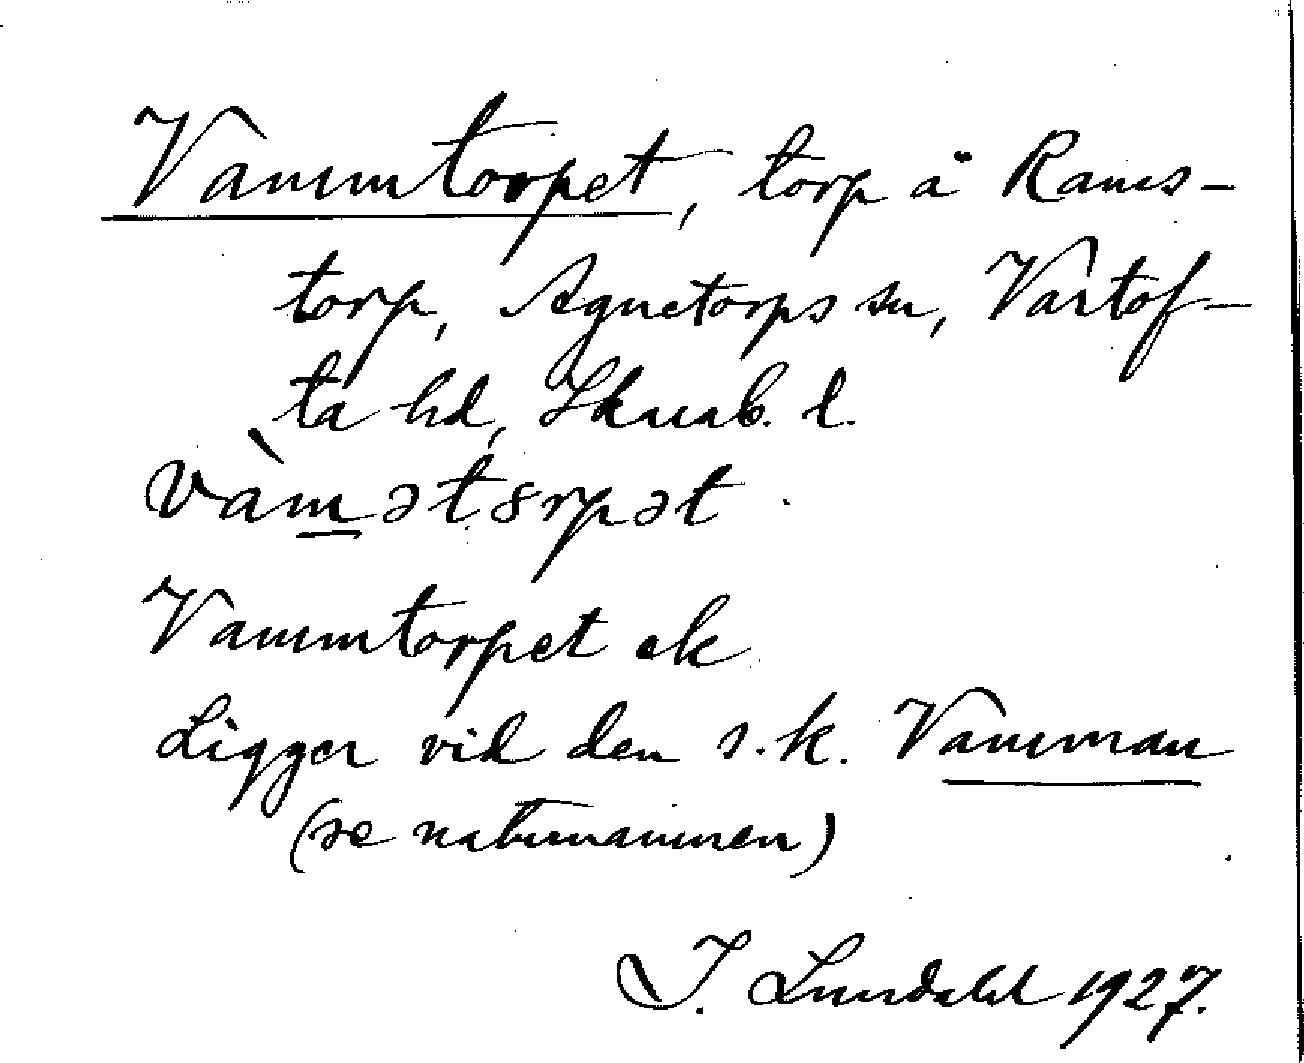 Vammtorpet, torp å Rams-
torp, Agnetorps sn, Vartof-
ta hd, Skarab. l.
vàmətɞrpət
Vammtorpet ek
Ligger vid den s.k. Vamman
(se naturnamnen)
I. Lundahl 1927.